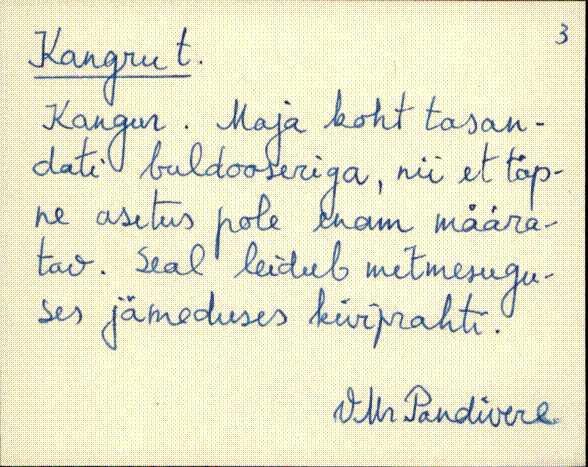 3
Kangru t.
Kangur. Maja koht tasan-
dati buldooseriga, nii et täp-
ne asetus pole enam määra-
tav. Seal leidub mitmesugu-
ses jämeduses kiviprahti.
VMr Pandivere